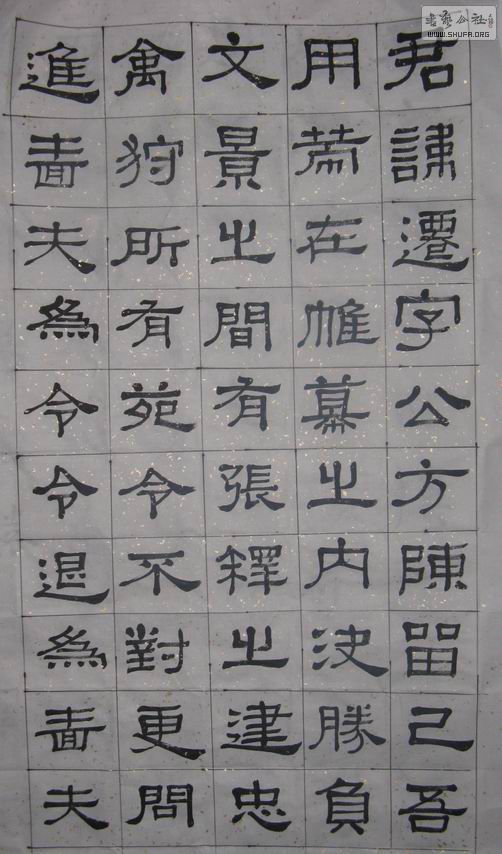 君諱遷字公方陳留己吾
用策在帷幕之内決勝負
文景之間有張釋之建忠
禽狩所有苑令不對更問
進嗇夫為令令退為嗇夫
書藝公社
WWW.SHUFA.ORG